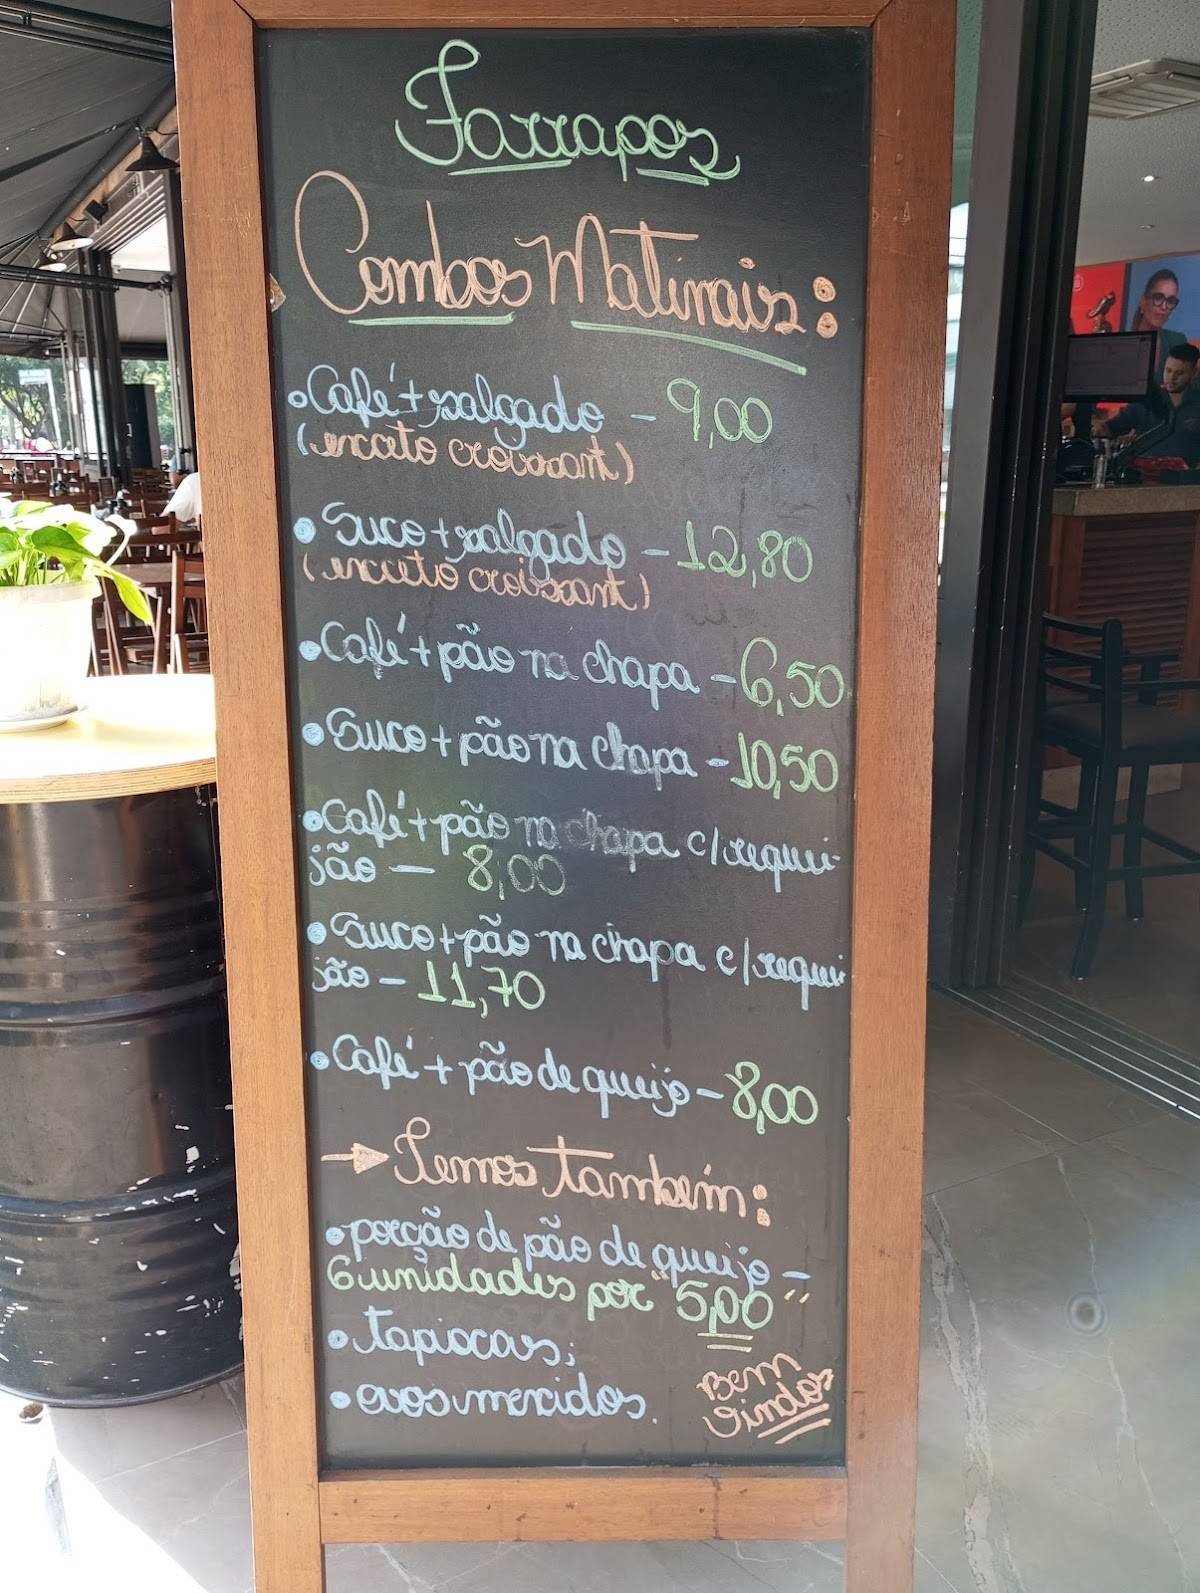 Farrapos
Combos Matinais:
• Café + salgado - 9,00
(exceto croissant)
• Suco + salgado - 12,80
(exceto croissant)
• Café + pão na chapa - 6,50
• Suco + pão na chapa - 10,50
• Café + pão na chapa c/ requei-
jão - 8,00
• Suco + pão na chapa c/ requei-
jão - 11,70
• Café + pão de queijo - 8,00
→ Temos também:
• porção de pão de queijo -
6 unidades por "5,00"
• tapiocas;
• ovos mexidos.
Bem
vindos